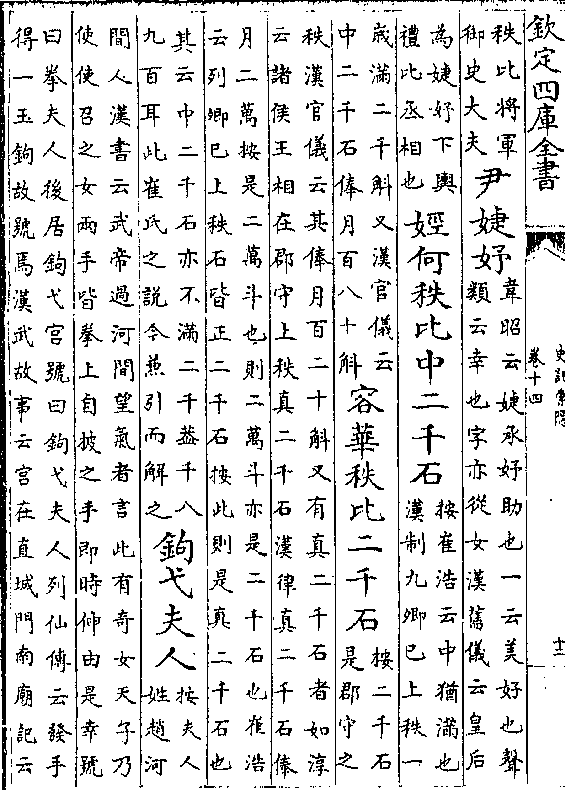 欽定四庫全書
史記索隱
卷十四
十一
秩比將軍
御史大夫
尹婕妤
韋昭云婕承妤助也一云美好也聲
類云幸也字亦從女漢舊儀云皇后
為婕妤下輿
禮比丞相也
娙何秩比中二千石
按崔浩云中猶滿也
漢制九卿已上秩一
歲滿二千斛又漢官儀云
中二千石俸月百八十斛
容華秩比二千石
按二千石
是郡守之
秩漢官儀云其俸月百二十斛又有真二千石者如淳
云諸侯王相在郡守上秩真二千石漢律真二千石俸
月二萬按是二萬斗也則二萬斗亦是二千石也崔浩
云列卿已上秩石皆正二千石按此則是真二千石也
其云中二千石亦不滿二千蓋千八
九百耳此崔氏之說今兼引而解之
鉤弋夫人
按夫人
姓趙河
間人漢書云武帝過河間望氣者言此有奇女天子乃
使使召之女兩手皆拳上自披之手即時伸由是幸號
曰拳夫人後居鉤弋宮號曰鉤弋夫人列仙傳云發手
得一玉鉤故號焉漢武故事云宮在直城門南廟記云